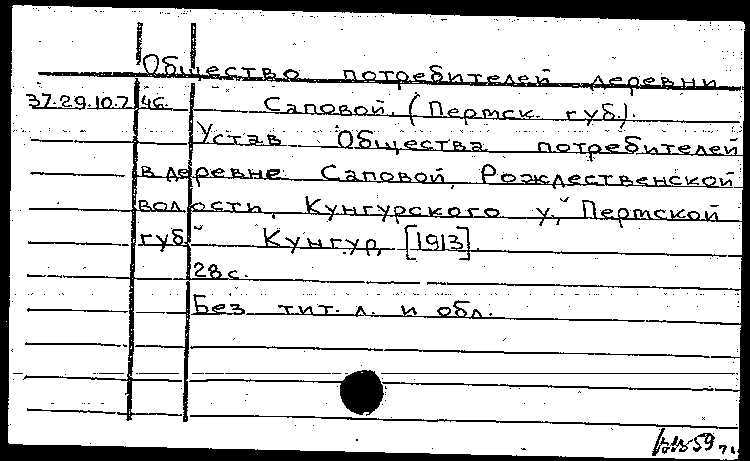 Общество потребителей деревни
37.29.10.7 46 Саповой, (Пермск. губ.).
Устав Общества потребителей
в деревне Саповой, Рождественской
волости, Кунгурского у., Пермской
губ. Кунгур, [1913].
28 с.
Без тит. л. и обл.